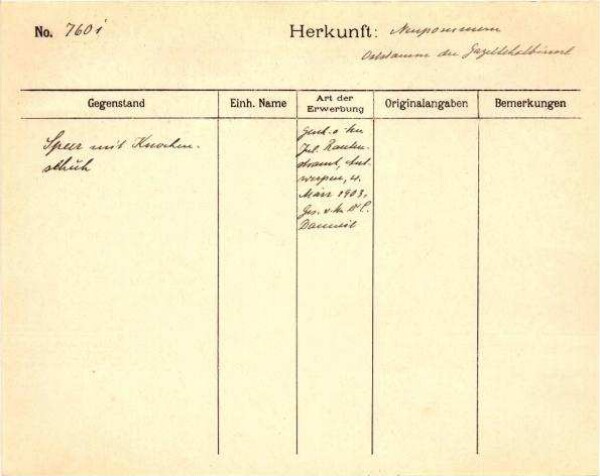 No. 760i
Herkunft: Neupommern
der Gazellehalbinsel
Gegenstand
Einh. Name
Art der
Erwerbung
Originalangaben
Bemerkungen
Speer mit Knochen-
Gesch. v. Hn
Jul. Rauten-
strauch, Ant-
werpen, 4.
März 1903.
Ges. v. Hn Dr C.
Danneil